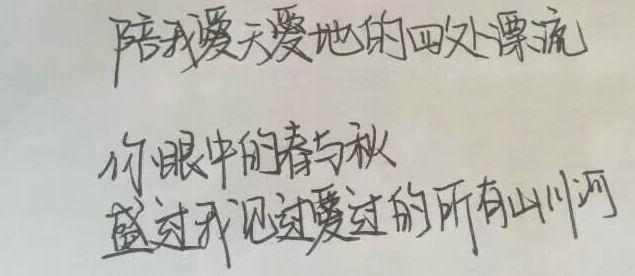 陪我爱天爱地的四处漂流
你眼中的春与秋
盛过我见过爱过的所有山川河